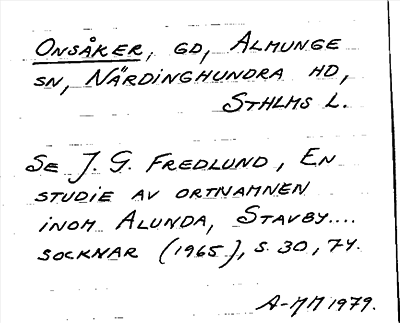 ONSÅKER, GD, ALMUNGE
SN, NÄRDINGHUNDRA HD,
STHLMS L.
SE J. G. FREDLUND, EN
STUDIE AV ORTNAMNEN
INOM ALUNDA, STAVBY....
SOCKNAR (1965), S. 30, 74.
A-MM 1979.